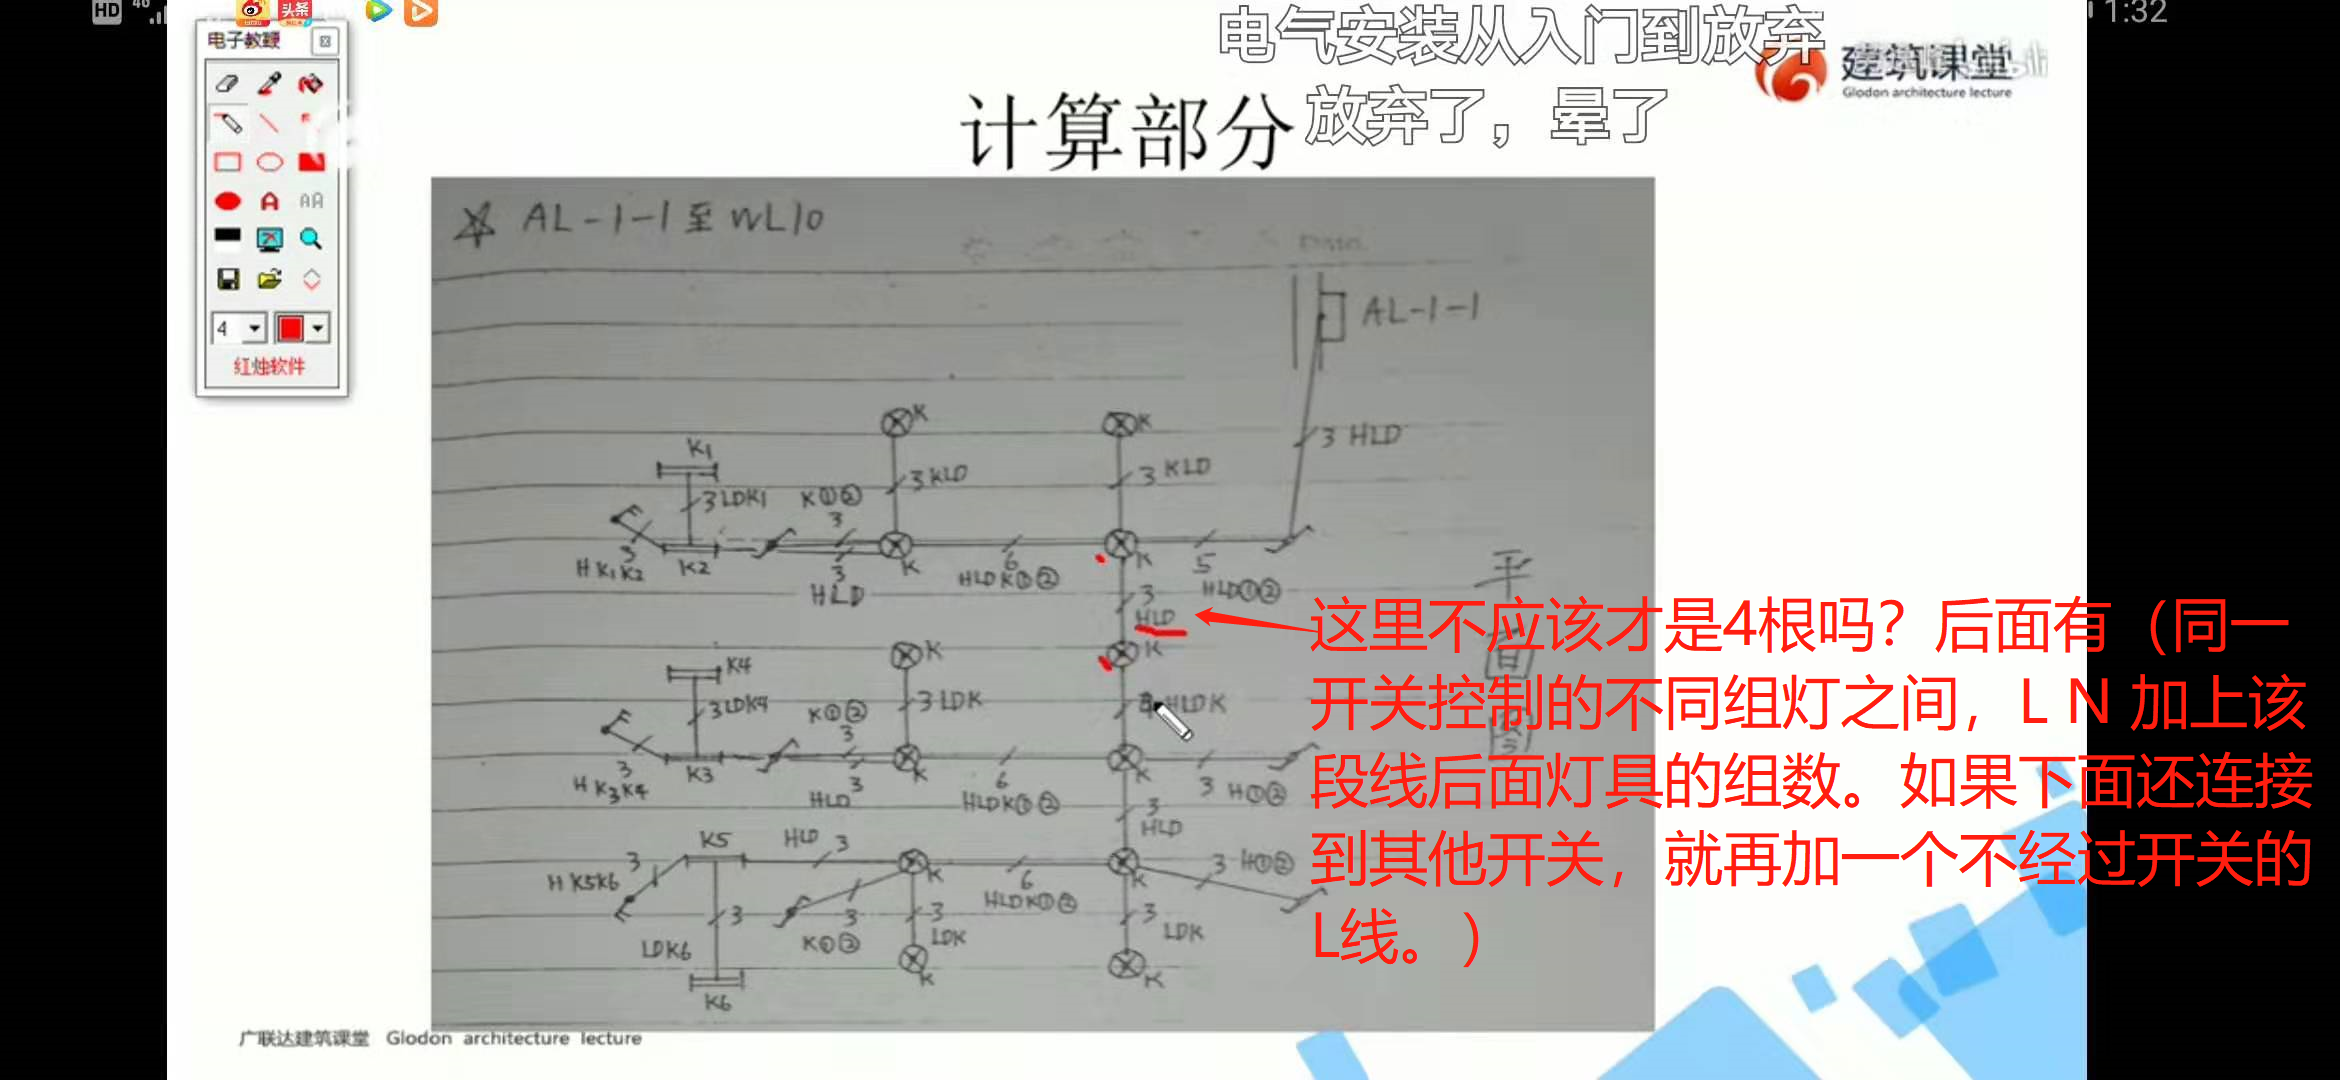 HD 4G
1:32
头条
电子教鞭
AA
4
红烛软件
电气安装从入门到放弃
放弃了，晕了
建筑课堂
Glodon architecture lecture
计算部分
AL-1-1至WL10
AL-1-1
3 HLD
K
K
K1
3LDK1
K①②
3
3KLD
3 KLD
3
HK1K2
K2
3
HLD
K
6
HLDK①②
K
5
HLD①②
3
HLD
平
面
图
K
K
K4
3LDK4
K①②
3
3LDK
HLDK
3
HK3K4
K3
3
HLD
K
6
HLDK①②
K
3 H①②
3
HLD
K5
HLD 3
3
HK5K6
K
6
HLDK①②
K
3 H①②
3
LDK6
3
K①②
3
LDK
3
LDK
K6
K
K
这里不应该才是4根吗？后面有（同一
开关控制的不同组灯之间，L N 加上该
段线后面灯具的组数。如果下面还连接
到其他开关，就再加一个不经过开关的
L线。）
广联达建筑课堂 Glodon architecture lecture